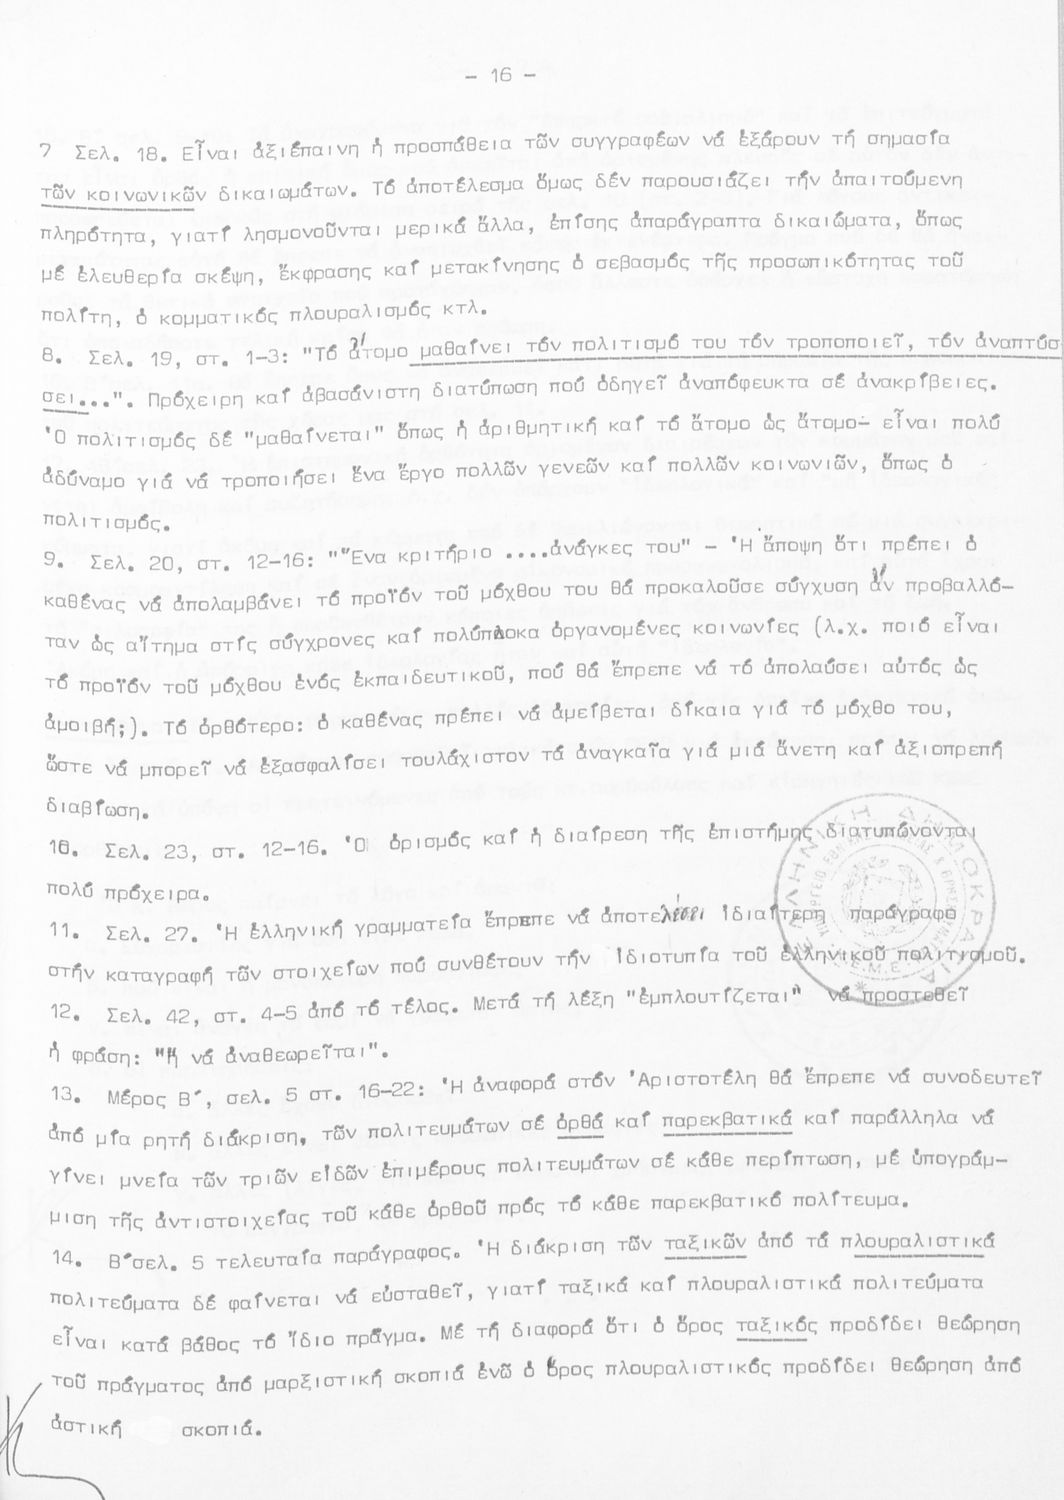 - 16 -
7 Σελ. 18. Εἶναι ἀξιέπαινη ἡ προσπάθεια τῶν συγγραφέων νά ἐξάρουν τή σημασία
τῶν κοινωνικῶν δικαιωμάτων. Τό ἀποτέλεσμα ὅμως δέν παρουσιάζει τήν ἀπαιτούμενη
πληρότητα, γιατί λησμονοῦνται μερικά ἄλλα, ἐπίσης ἀπαράγραπτα δικαιώματα, ὅπως
μέ ἐλευθερία σκέψη, ἔκφρασης καί μετακίνησης ὁ σεβασμός τῆς προσωπικότητας τοῦ
πολίτη, ὁ κομματικός πλουραλισμός κτλ.
8. Σελ. 19, στ. 1-3: "Τό ἄτομο μαθαίνει τόν πολιτισμό του τόν τροποποιεῖ, τόν ἀναπτύσ
σει...". Πρόχειρη καί ἀβασάνιστη διατύπωση πού ὁδηγεῖ ἀναπόφευκτα σέ ἀνακρίβειες.
Ὁ πολιτισμός δέ "μαθαίνεται" ὅπως ἡ ἀριθμητική καί τό ἄτομο ὡς ἄτομο- εἶναι πολύ
ἀδύναμο γιά νά τροποιήσει ἕνα ἔργο πολλῶν γενεῶν καί πολλῶν κοινωνιῶν, ὅπως ὁ
πολιτισμός.
9. Σελ. 20, στ. 12-16: "Ἕνα κριτήριο ....ἀνάγκες του" - Ἡ ἄποψη ὅτι πρέπει ὁ
καθένας νά ἀπολαμβάνει τό προϊόν τοῦ μόχθου του θά προκαλοῦσε σύγχυση ἄν προβαλλό-
ταν ὡς αἴτημα στίς σύγχρονες καί πολύπλοκα ὀργανομένες κοινωνίες (λ.χ. ποιό εἶναι
τό προϊόν τοῦ μόχθου ἑνός ἐκπαιδευτικοῦ, πού θά ἔπρεπε νά τό ἀπολαύσει αὐτός ὡς
ἀμοιβή;). Τό ὀρθότερο: ὁ καθένας πρέπει νά ἀμείβεται δίκαια γιά τό μόχθο του,
ὥστε νά μπορεῖ νά ἐξασφαλίσει τουλάχιστον τά ἀναγκαῖα γιά μιά ἄνετη καί ἀξιοπρεπή
διαβίωση.
10. Σελ. 23, στ. 12-16. Ὁ ὁρισμός καί ἡ διαίρεση τῆς ἐπιστήμης διατυπώνονται
πολύ πρόχειρα.
11. Σελ. 27. Ἡ ἑλληνική γραμματεία ἔπρεπε νά ἀποτελέσει ἰδιαίτερη παράγραφο
στήν καταγραφή τῶν στοιχείων πού συνθέτουν τήν ἰδιοτυπία τοῦ ἑλληνικοῦ πολιτισμοῦ.
12. Σελ. 42, στ. 4-5 ἀπό τό τέλος. Μετά τή λέξη "ἐμπλουτίζεται" νά προστεθεῖ
ἡ φράση: "ἤ νά ἀναθεωρεῖται".
13. Μέρος Β΄, σελ. 5 στ. 16-22: Ἡ ἀναφορά στόν Ἀριστοτέλη θά ἔπρεπε νά συνοδευτεῖ
ἀπό μία ρητή διάκριση, τῶν πολιτευμάτων σέ ὀρθά καί παρεκβατικά καί παράλληλα νά
γίνει μνεία τῶν τριῶν εἰδῶν ἐπιμέρους πολιτευμάτων σέ κάθε περίπτωση, μέ ὑπογράμ-
μιση τῆς ἀντιστοιχείας τοῦ κάθε ὀρθοῦ πρός τό κάθε παρεκβατικό πολίτευμα.
14. Β΄σελ. 5 τελευταία παράγραφος. Ἡ διάκριση τῶν ταξικῶν ἀπό τά πλουραλιστικά
πολιτεύματα δέ φαίνεται νά εὐσταθεῖ, γιατί ταξικά καί πλουραλιστικά πολιτεύματα
εἶναι κατά βάθος τό ἴδιο πράγμα. Μέ τή διαφορά ὅτι ὁ ὅρος ταξικός προδίδει θεώρηση
τοῦ πράγματος ἀπό μαρξιστική σκοπιά ἐνῶ ὁ ὅρος πλουραλιστικός προδίδει θεώρηση ἀπό
ἀστική σκοπιά.
ΕΛΛΗΝΙΚΗ ΔΗΜΟΚΡΑΤΙΑ